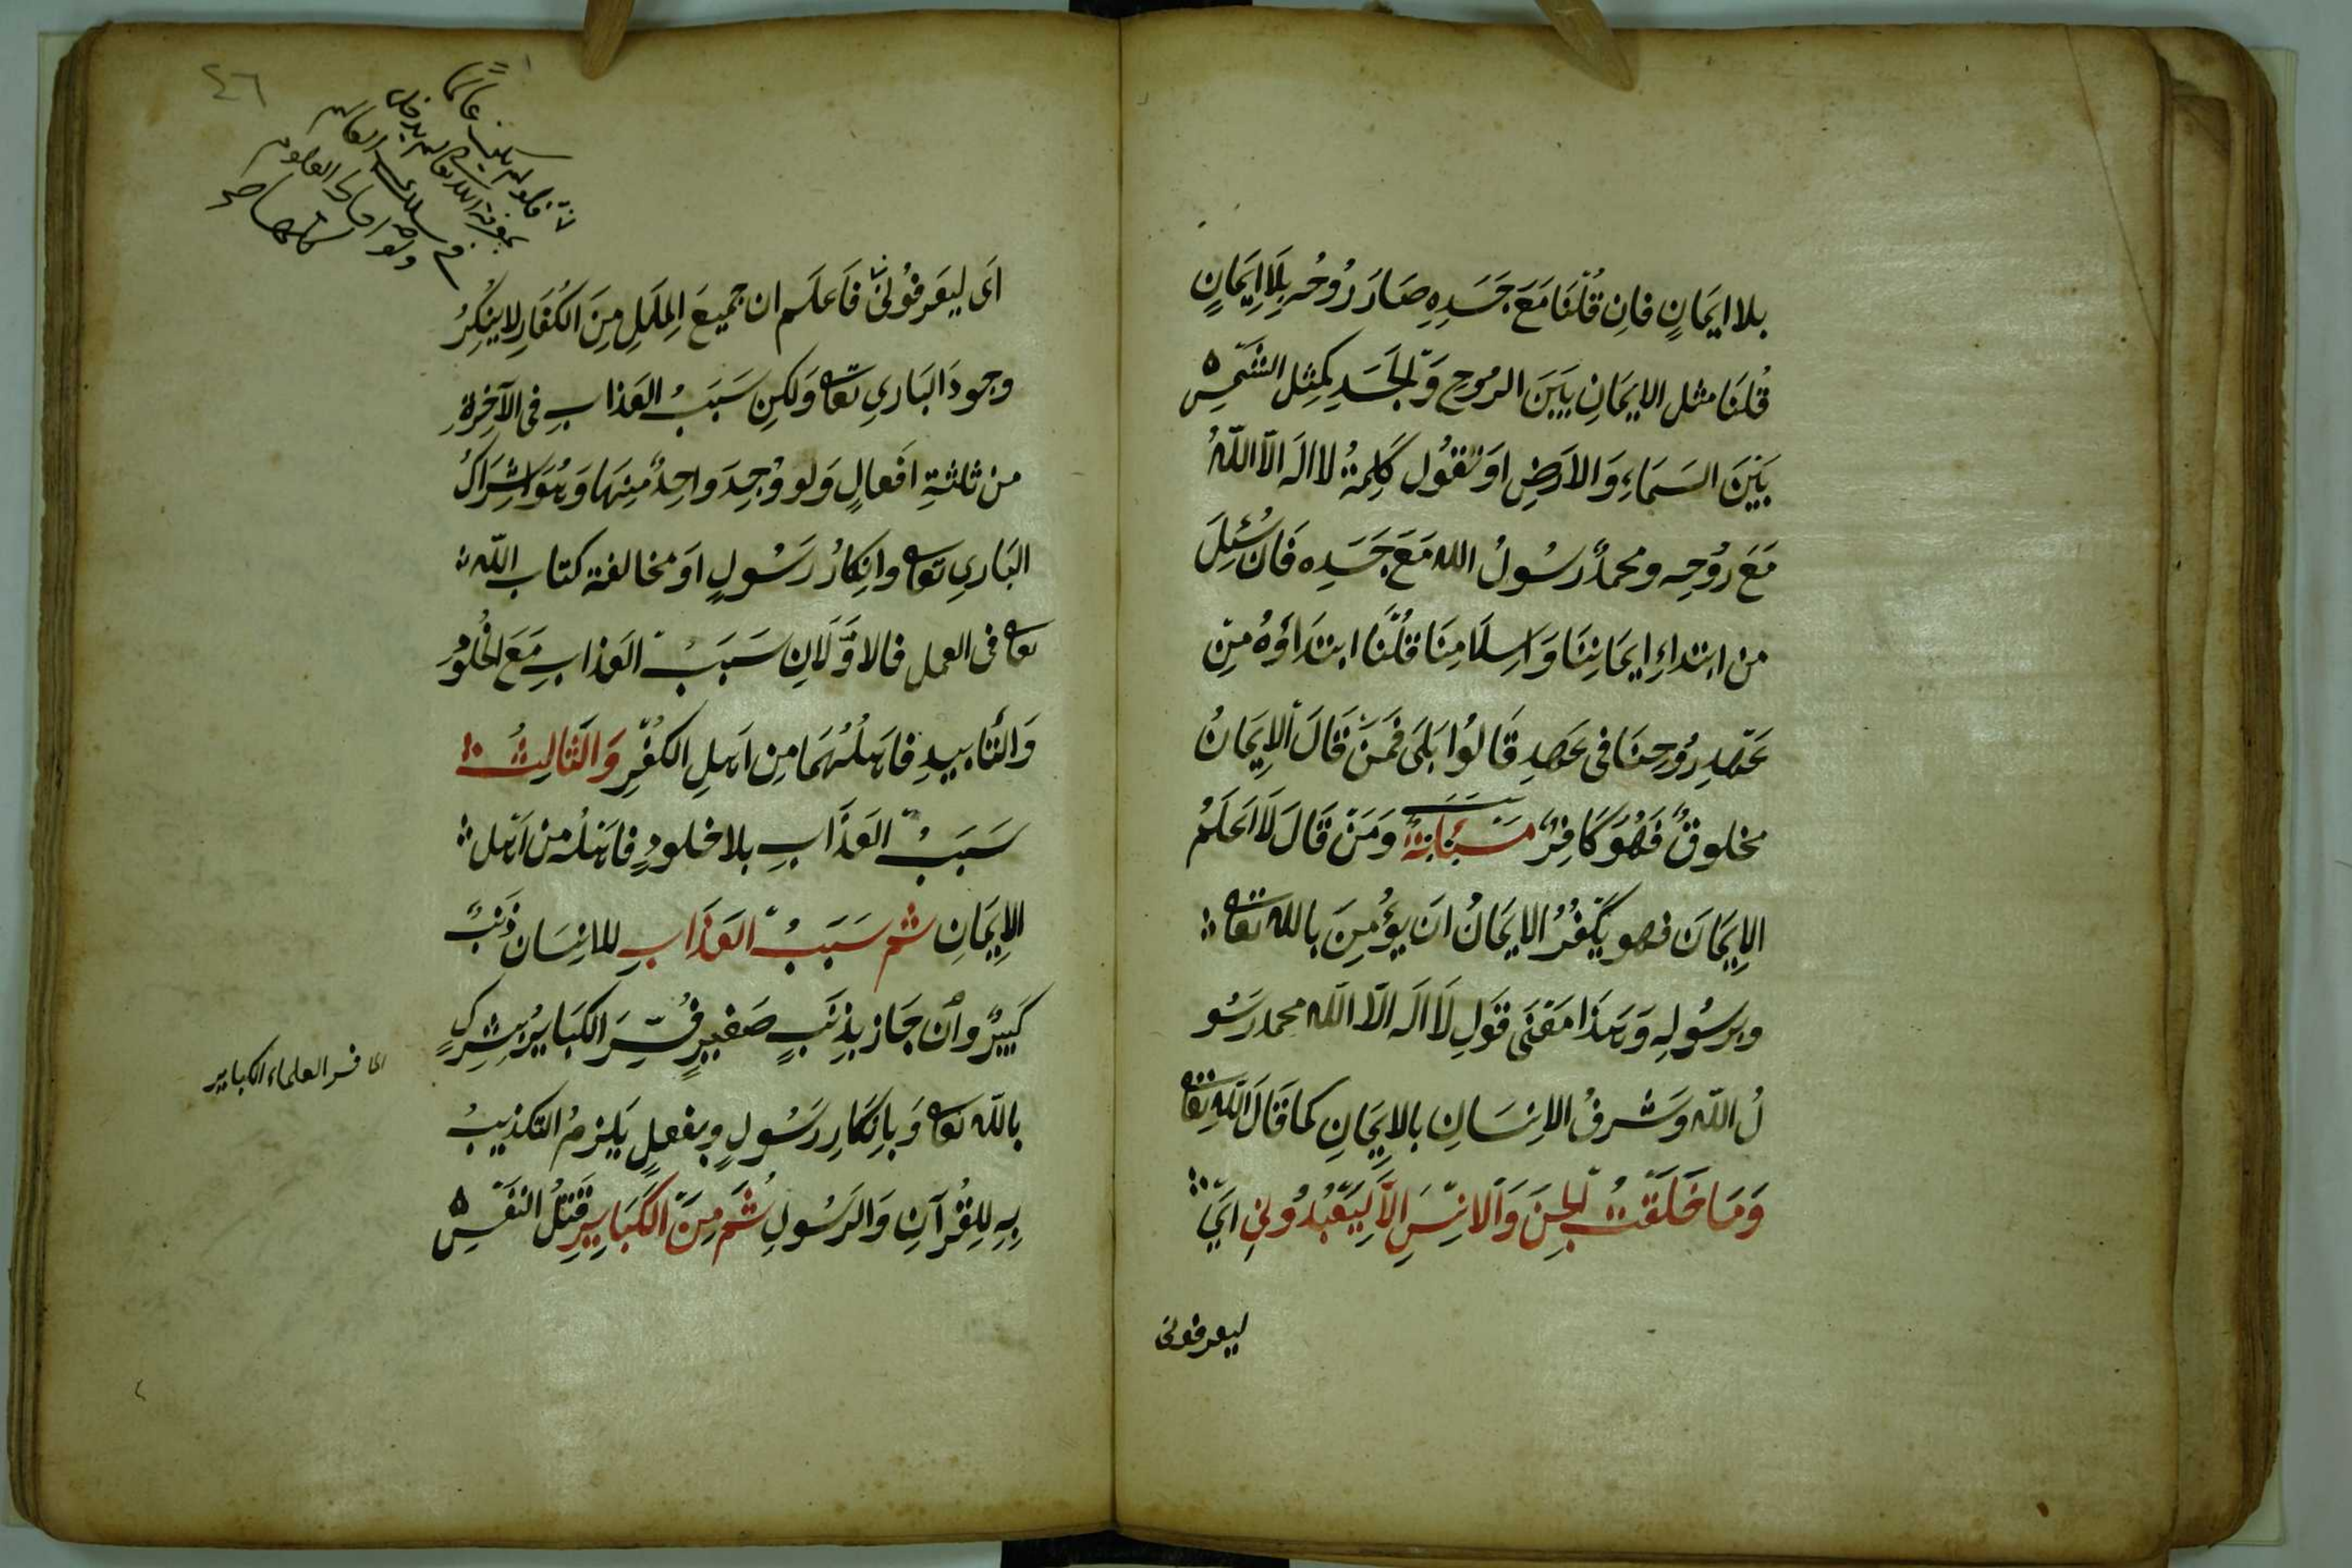 بلا ايمَانٍ فاِن قُلْنَا مَعَ جَسَدِهِ صَارَ رُوحُه بِلَا اِيمَانٍ
قُلْنَا مثل الايمَانِ بَيْنَ الروُحِ وَالجَسَدِ كمِثل الشَّمْسِ
بَيْنَ السَمَاءِ وَالاَرْضِ اوَ تَقُول كَلِمَةُ لا اله الّا اللّٰهُ
مَعَ رُوُحِه ومحمدٌ رسُولُ الله مَعَ جَسَدِه فَان سُئِلَ
من ابتداءِ ايمَانِنَا وَاسِلَامِنَا قُلْنَا ابتدَاؤهُ مِن
عَهْدِ رُوُحِنَا فى عَهدِ قَالوُا بَلَى فمَنْ قَالَ اَلاِيمَانُ
مخلوقٌ فَهُوَ كَافِرٌ مَسْئَلَةٌ وَمَنْ قَالَ لَا اَعلَمُ
الاِيمَانَ فهو يَكْفُرُ الايمَانُ انَ يؤُمِنَ بالله تعا
وبرسُولِه وَهذَا مَعْنَى قَوْلِ لَا اله الّا اللّٰه محمد رَسُو
لُ اللّٰه وَشرفُ الاِنسَانِ بالايمَانِ كما قَالَ اللّٰه تعا
وَمَا خَلَقْتُ الجِنَ وَالانْسَ الاَّ لِيَعْبُدُونِ اَىْ
ليعرفونى
٤٦
اَى ليَعرفُونَى فَاَعلَم ان جميعَ المِلَلِ مِنَ الكُفَارِ لا ينكِرُ
وجودَ البَارىِ تعا وَلكِن سَبَبُ العَذابِ فى الآخِرةِ
من ثلثةِ افَعالٍ وَلو وُجِدَ واحِدٌ مِنهَا وَهُوَ اشِرَاكُ
البَارىِ تعا وانِكارُ رَسُولٍ اوَ مخالفة كتاب اللّٰه
تعا فى العمل فالاوَّلَانِ سَبَبُ العَذابِ مَعَ الخُلُودِ
وَالتَأبيدِ فاهَلُهُمَا مِن اهَلِ الكفُرِ وَالثَالِثُ
سَبَبُ العَذَابِ بلا خلودٍ فاهَلُه من اهَل
الاِيمَانِ ثم سَبَبُ العَذَابِ للانِسَان ذَنبٌ
كبَيرٌ وانَ جَاز بِذنَبٍ صَغيرٍ فُسِّرَ الكبَايرُ بِشِركٍ
بالله تعا وَبِانِكَارِ رَسُولٍ وبفعلٍ يَلزمُ التكذيبُ
بِهِ لِلقُرْآنِ وَالرَسُولِ ثُمَ مِنَ الكَبَايرِ قَتْلُ النَفْسِ
اى فسر العلماء الكباير